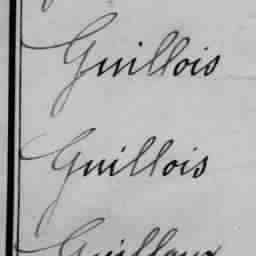 Guillois
Guillois
Guilloux